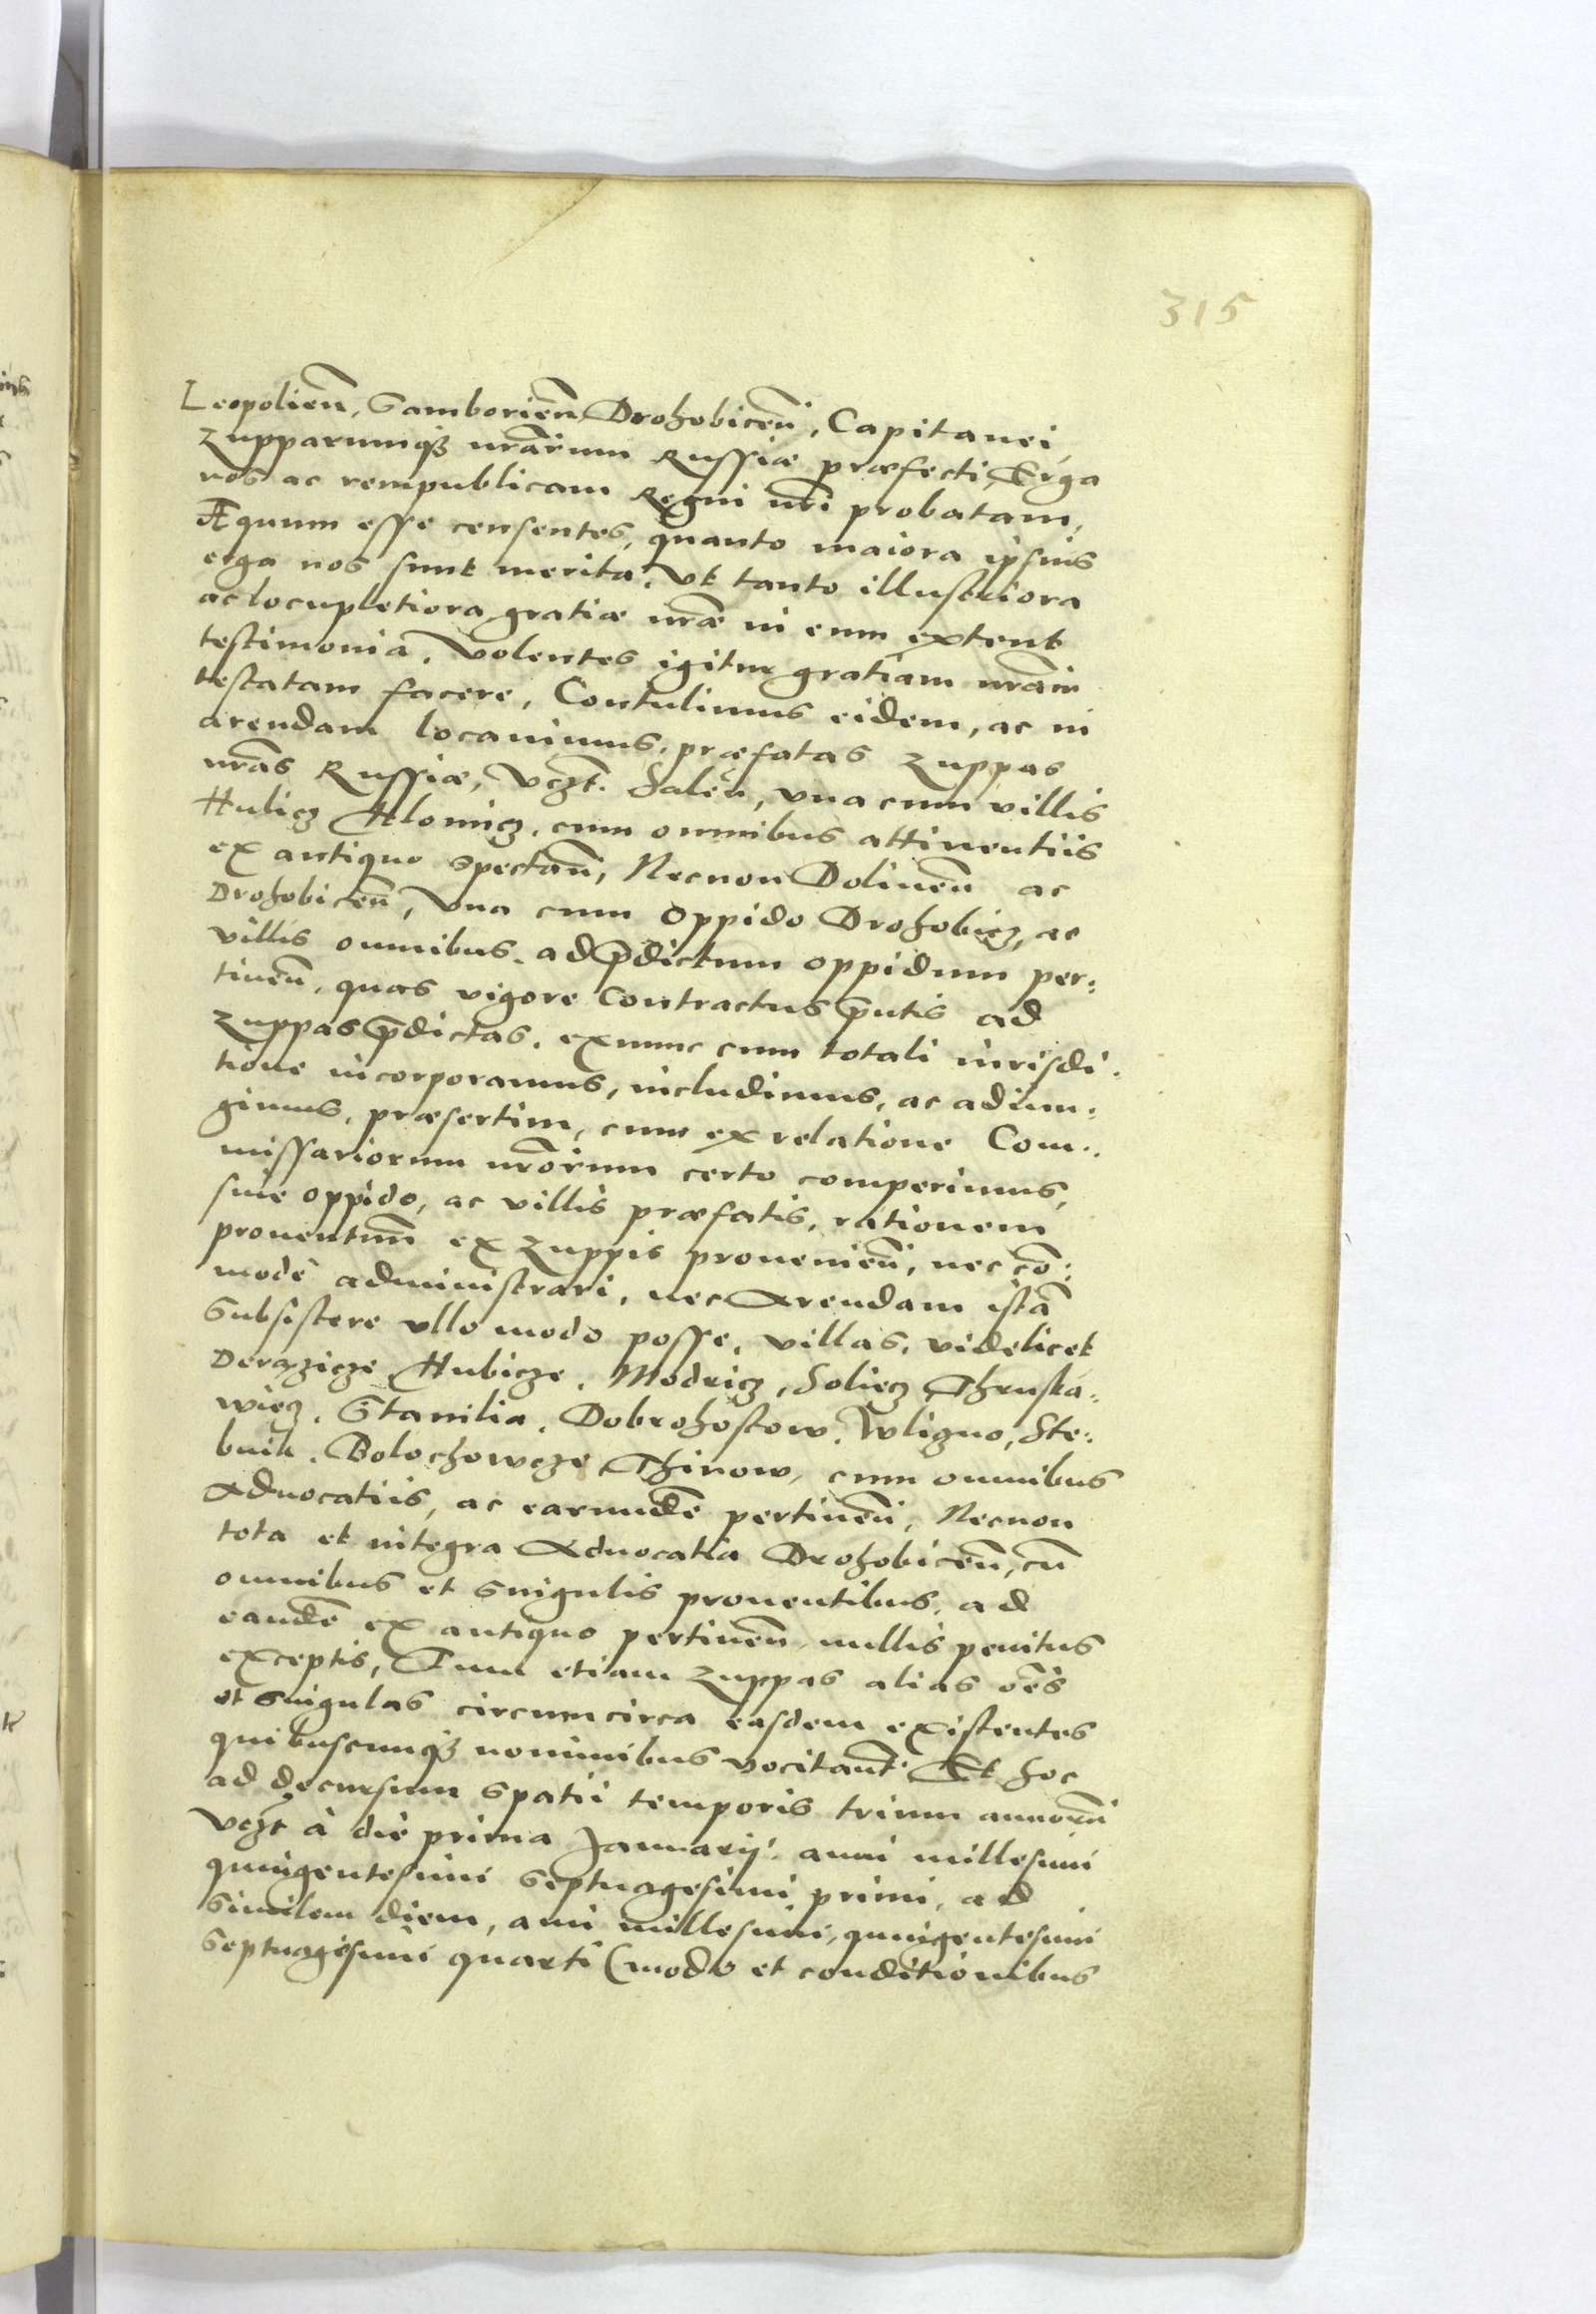 315
Leopolien̄, Samborien̄, Drohobicen̄, Capitanei,
Zupparumq̃ nr̄arum Russiæ præfecti, Erga
nos ac rempublicam Regni nr̄i probatam,
Æquum esse censentes, quanto maiora ipsius
erga nos sunt merita, Vt tanto illustriora
ac locupletiora gratiæ nr̄æ in eum extent
testimonia. Volentes igitur gratiam nr̄am
testatam facere, Contulimus eidem, ac in
arendam locauimus, præfatas Zuppas
nr̄as Russiæ, Vcz̄t. Salen̄, vna cum villis
Hulicz Klonicz, cum omnibus attinentiis
ex antiquo spectan̄, Necnon Dolinen̄ ac
Drohobicen̄, Vna cum Oppido Drohobicz, ac
villis omnibus, ad p̄dictum oppidum per:
tinen̄, quas vigore Contractus p̄ntis ad
Zuppas p̄dictas, exnunc cum totali iurisdi:
tione incorporamus, includimus, ac adiun:
gimus, præsertim, cum ex relatione Com:
missariorum nr̄orum certo comperimus,
sine oppido, ac villis præfatis, rationem
prouentum̄ ex Zuppis prouenien̄, nec cō:
modè administrari, nec Arendam istā
Subsistere vllo modo posse, villas, videlicet
Derazicze Hubicze, Modricz, Soliecz Thruska:
wiecz, Stanilia, Dobrohostow, Wligno, Ste:
bnik, Bolochowcze Thinow, cum omnibus
Aduocatiis, ac earundē pertinen̄, Necnon
tota et integra Aduocatia Drohobicen̄, cū
omnibus et singulis prouentibus, ad
eandē ex antiquo pertinen̄ nullis penitus
exceptis, Tum etiam Zuppas alias om̄es
et singulas circumcirca easdem existentes
quibuscunq̃ nominibus vocitant̄. Et hoc
ad decursum spatii temporis trium annoru̅
Vcz̄t à die prima Januarij anni millesimi
quingentesimi septuagesimi primi, ad
Similem diem, anni millesimi, quingentesimi
Septuagesimi quarti (modo et conditionibus